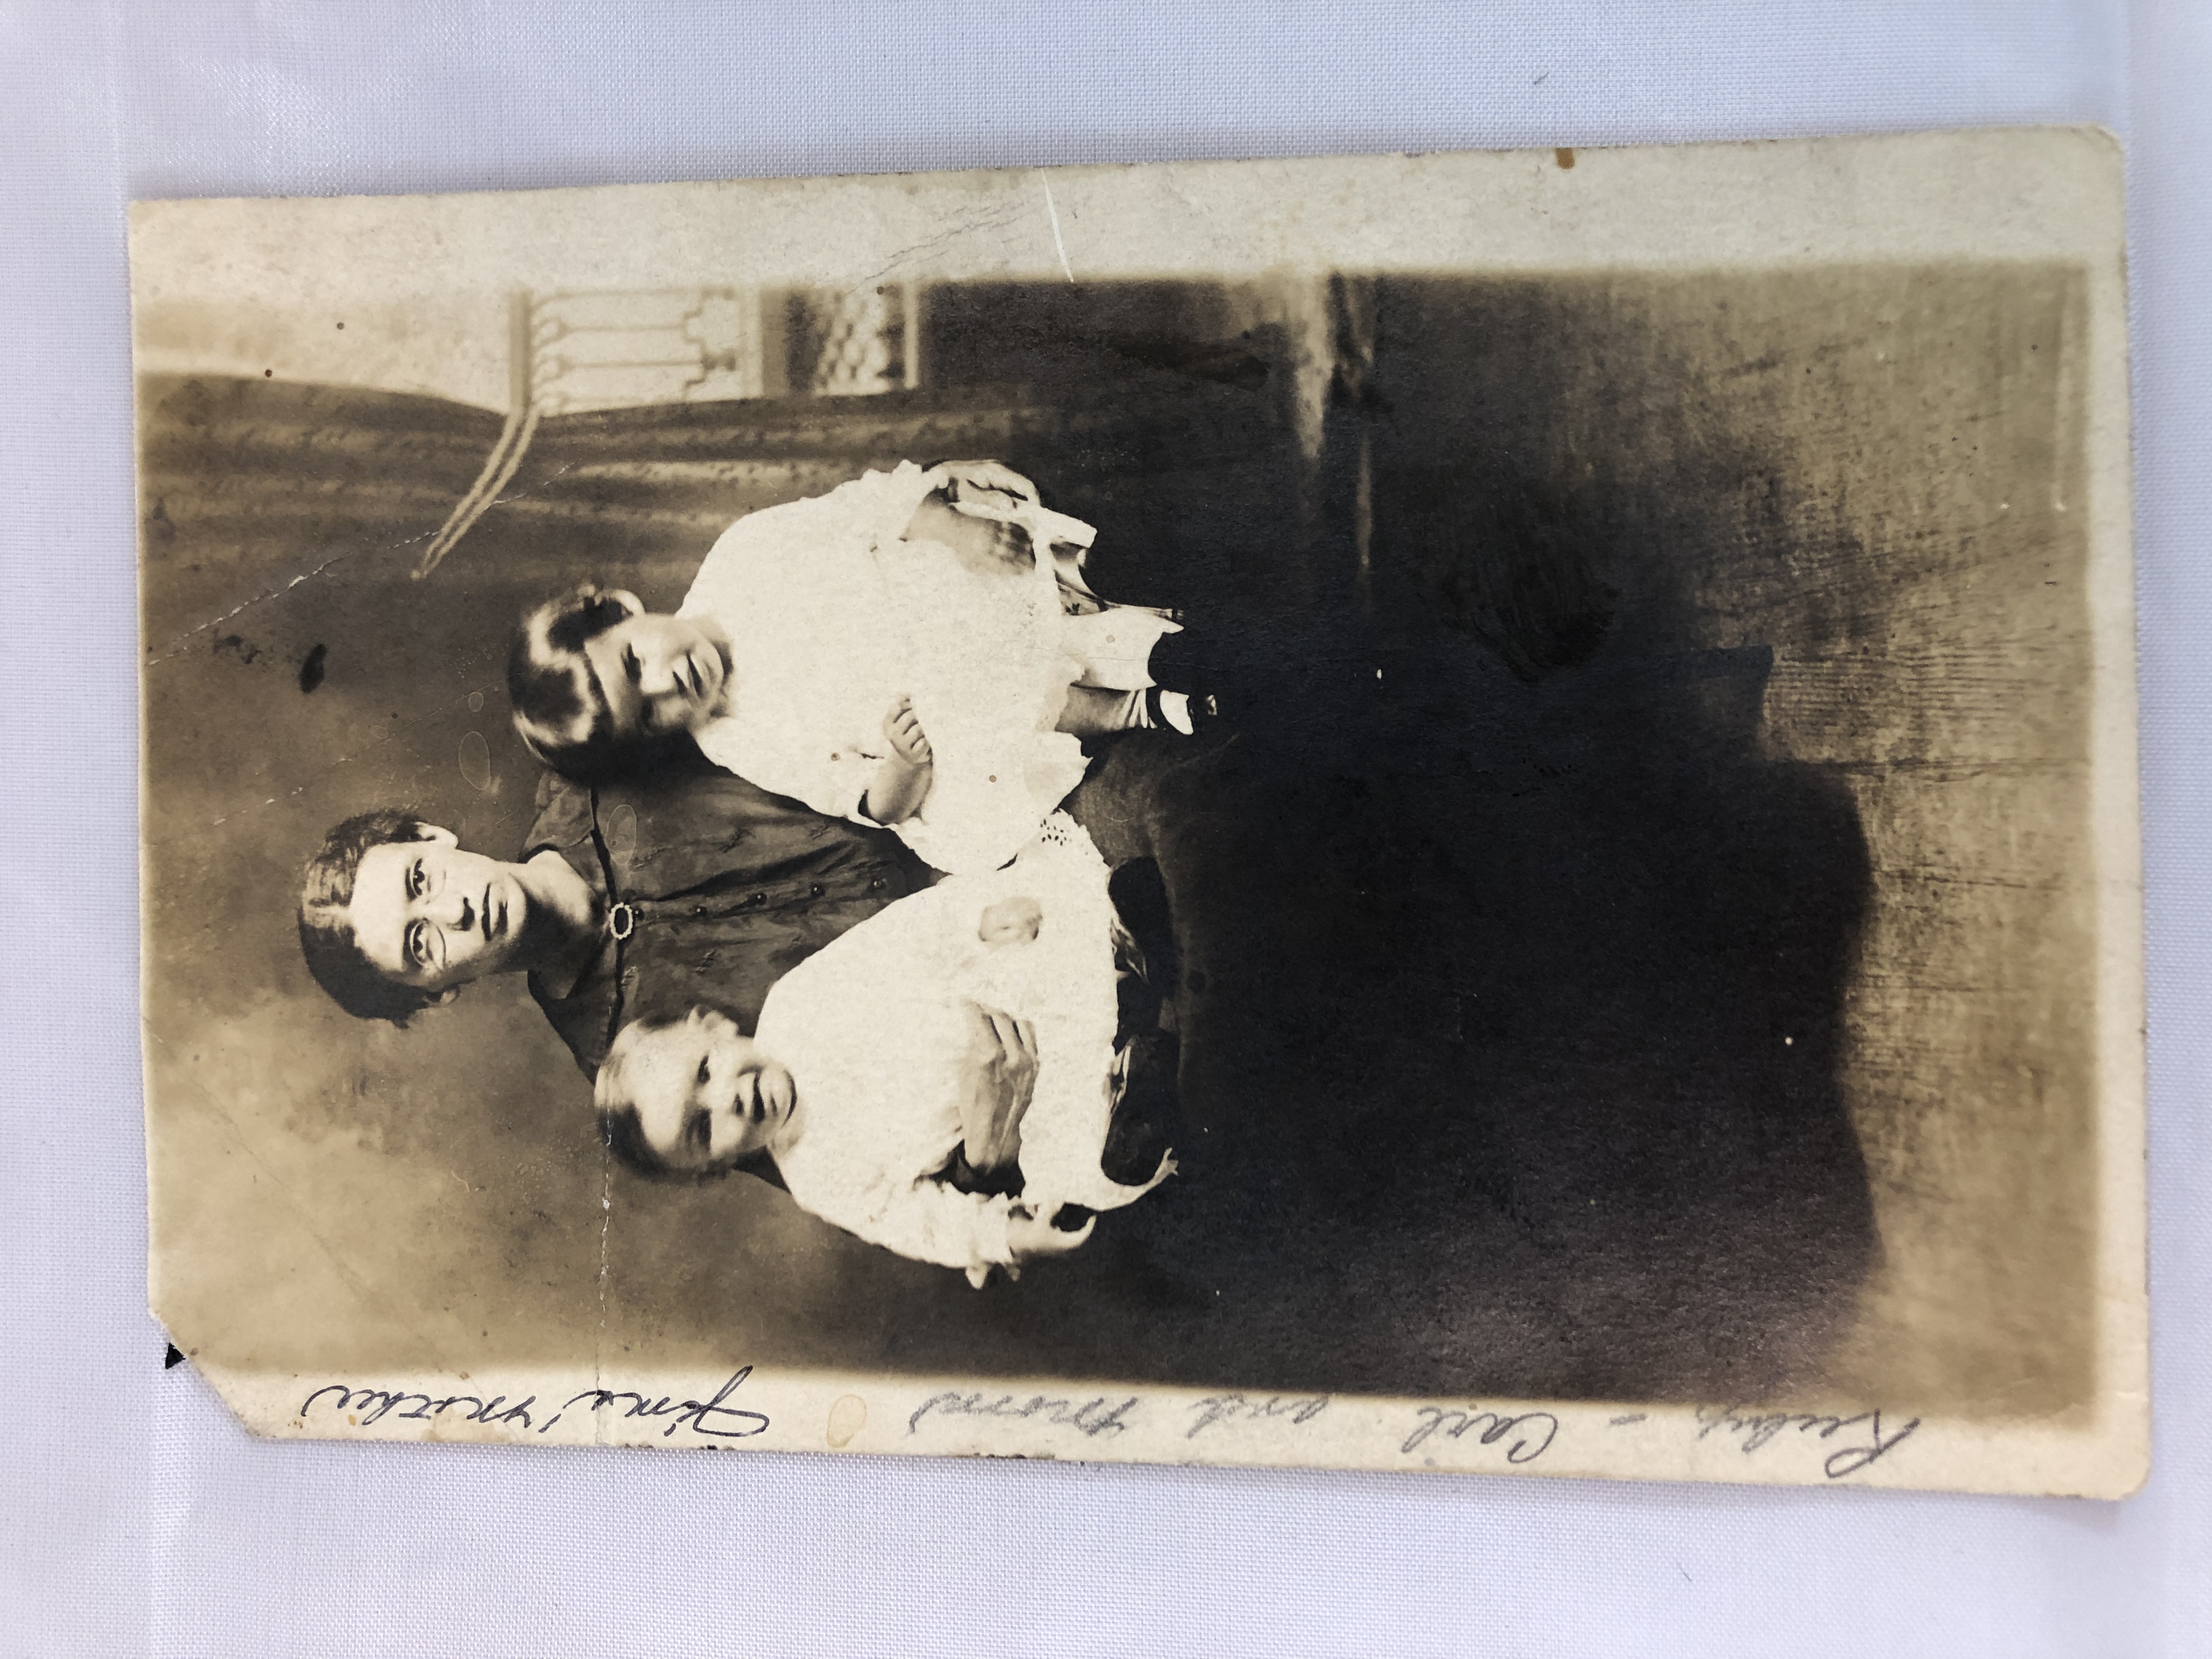 Ruby - Carl and Mom Jims' Mother